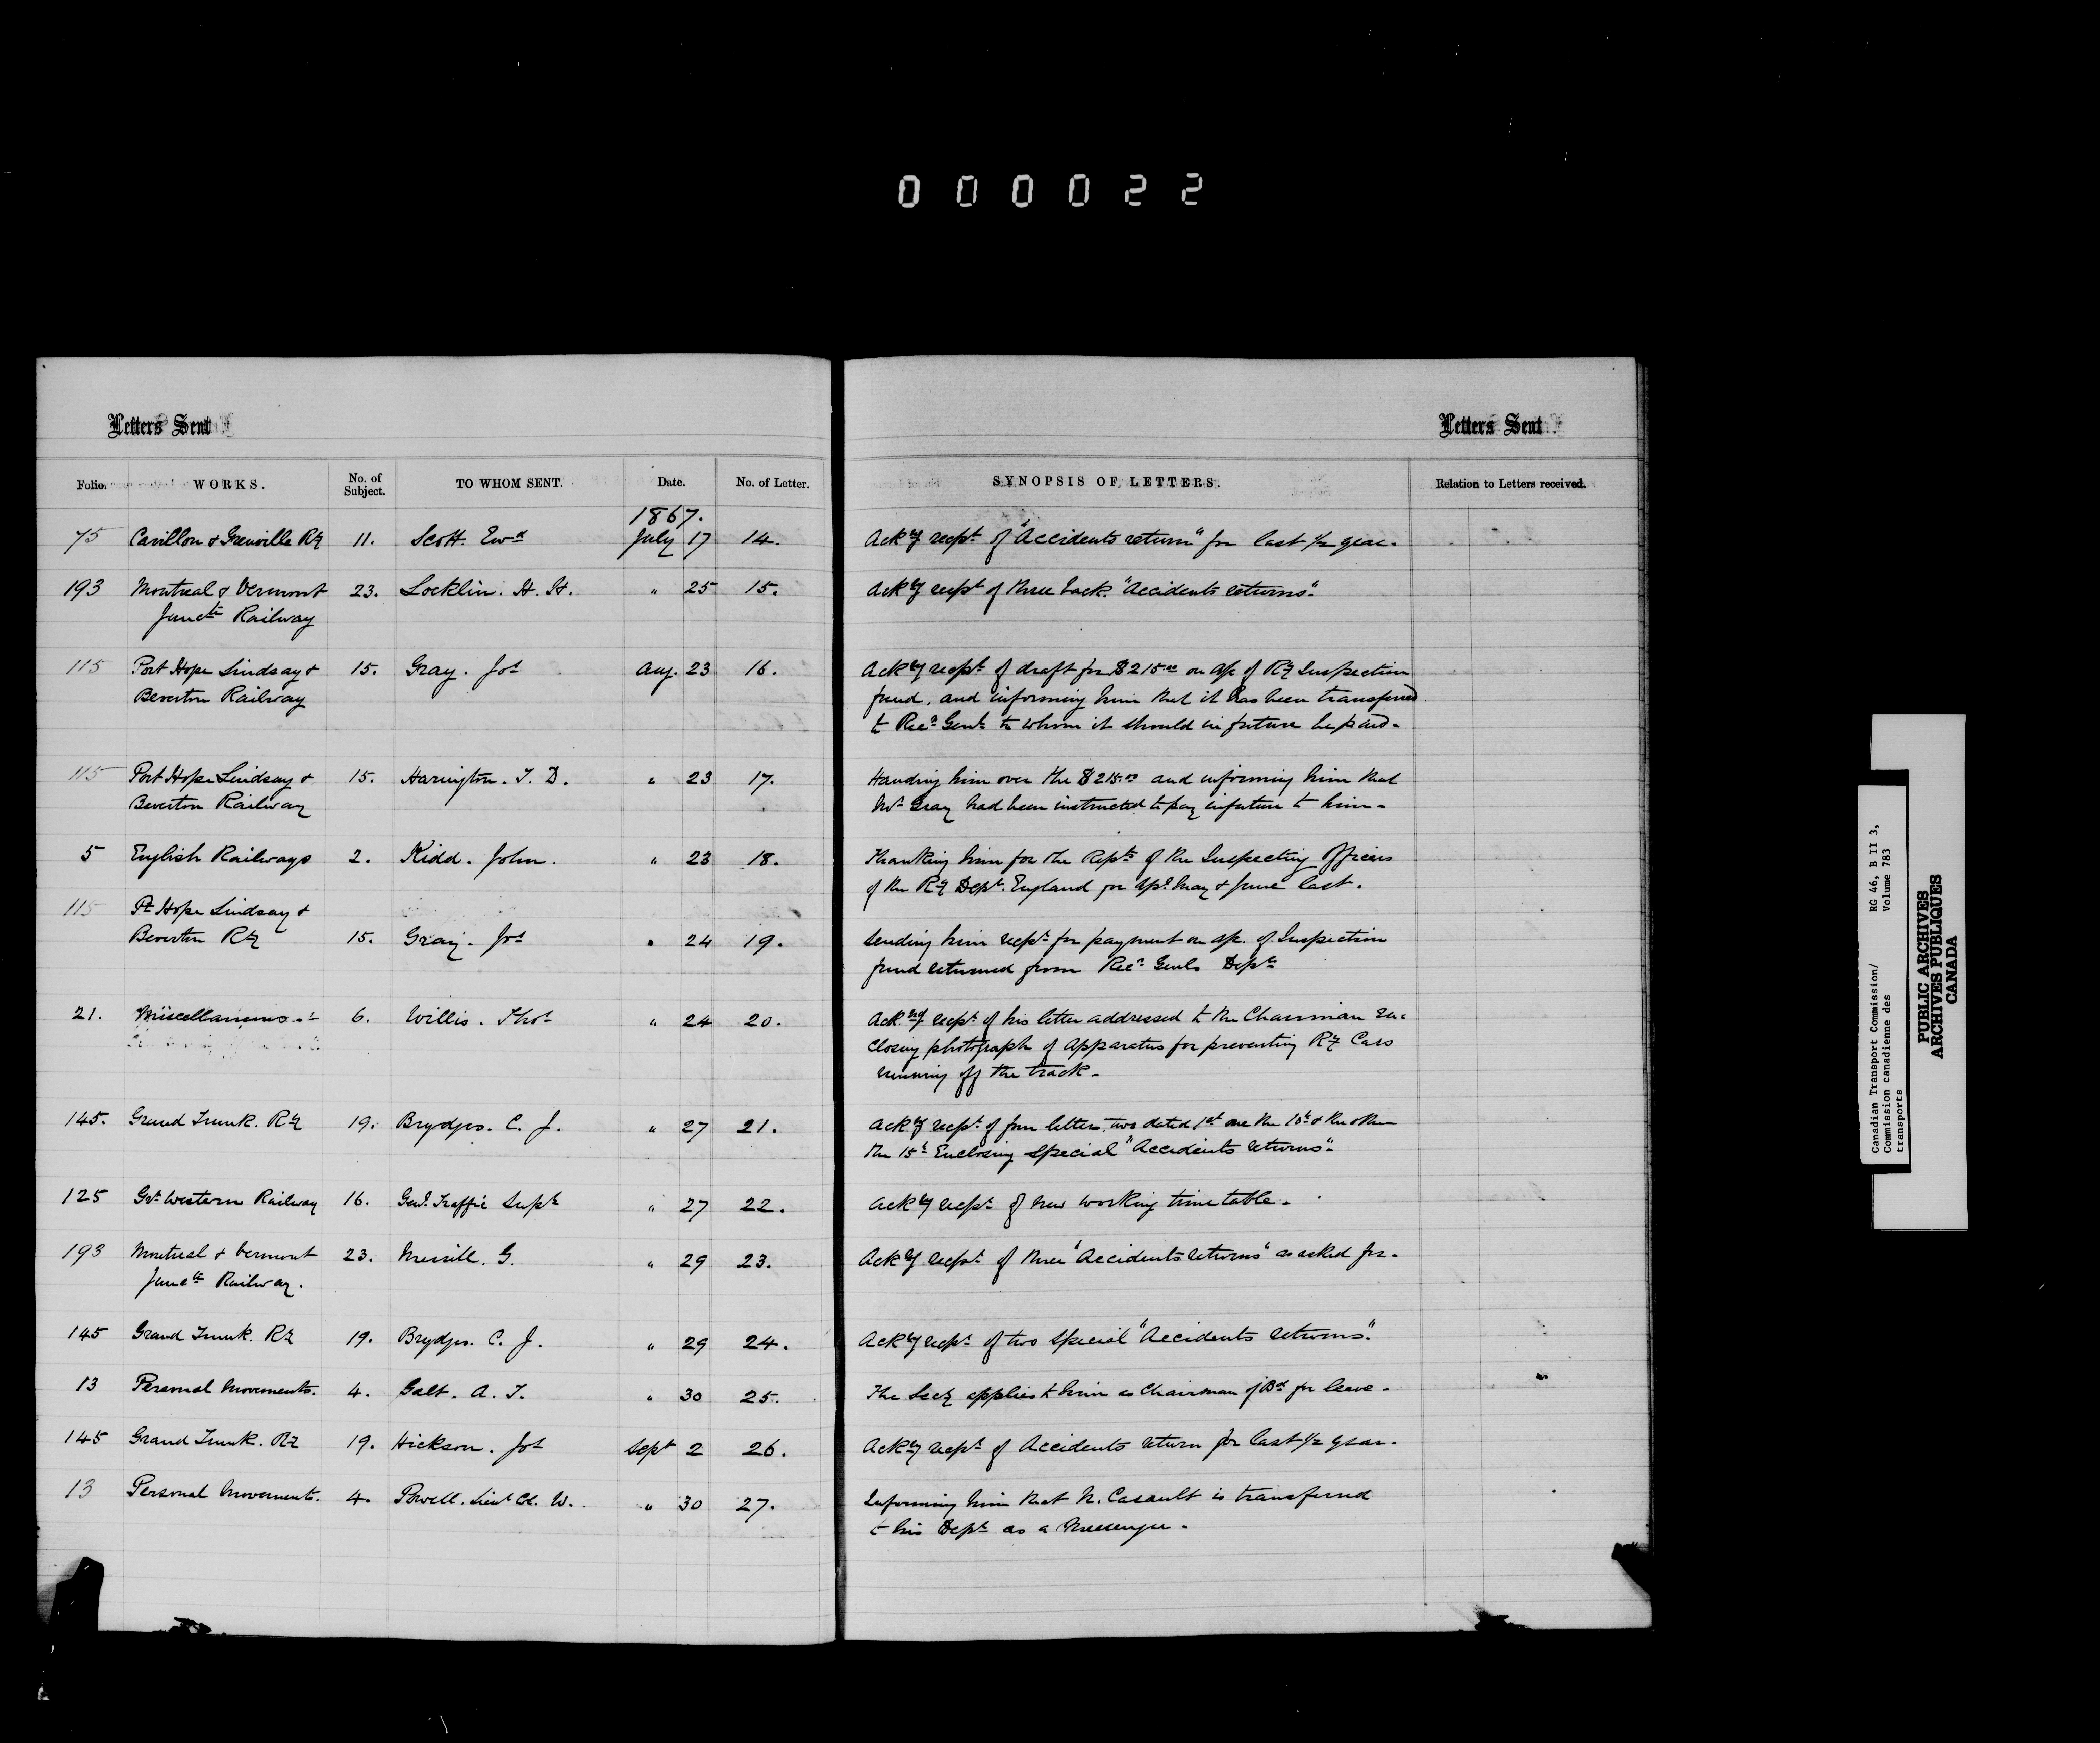 000022
Letters Sent
Letters Sent
Folio. WORKS. No. of Subject. TO WHOM SENT. Date. No. of Letter. SYNOPSIS OF LETTERS. Relation to Letters received.
1867.
75 Carillon & Grenville Ry 11. Scott. Ewd July 17 14. Ackg recpt of "Accidents return" for last 1/2 year.
193 Montreal & Vermont 23. Locklin. H. H. " 25 15. Ackg recpt of three back "Accidents returns".
Junctn Railway
115 Port Hope Lindsay & 15. Gray. Jos Aug. 23 16. Ackg recpt of draft for $215.00 on a/c of Ry Inspection
Beverton Railway fund, and informing him that it has been transferred
to Recr Genl to whom it should in future be paid.
115 Port Hope Lindsay & 15. Harington. T. D. " 23 17. Handing him over the $215.00 and informing him that
Beverton Railway Mr Gray had been instructed to pay in future to him.
5 English Railways 2. Kidd. John. " 23 18. Thanking him for the Repts of the Inspecting Officers
of the Ry Dept. England for Apl. May & June last.
115 Pt Hope Lindsay &
Beverton Ry 15. Gray. Jos " 24 19. Sending him recpt for payment on a/c. of Inspection
fund returned from Recr Genls Dept
21. Miscellaneous 6. Willis. Thos " 24 20. Ackng recpt of his letter addressed to the Chairman en-
closing photograph of apparatus for preventing Ry Cars
running off the track.
145. Grand Trunk. Ry 19. Brydges. C. J. " 27 21. Ackg recpt of four letters, two dated 1st one the 10th & the other
the 15th Enclosing special "Accidents returns".
125 Gt Western Railway 16. Genl. Traffic Supt " 27 22. Ackg recpt of new working time table.
193 Montreal & Vermont 23. Merrill. G. " 29 23. Ackg recpt of three "Accidents returns" as asked for.
Junctn Railway.
145 Grand Trunk. Ry 19. Brydges. C. J. " 29 24. Ackg recpt of two special "Accidents returns".
13 Personal Movements. 4. Galt. A. T. " 30 25. The Secy applies to him as Chairman of Bd for leave.
145 Grand Trunk. Ry 19. Hickson. Jos Sept 2 26. Ackg recpt of Accidents return for last 1/2 year.
13 Personal Movements. 4. Powell. Lieut Col. W. " 30 27. Informing him that N. Casault is transferred
to his Dept as a Messenger.
Canadian Transport Commission/ RG 46, B II 3,
Commission canadienne des Volume 783
transports
PUBLIC ARCHIVES
ARCHIVES PUBLIQUES
CANADA